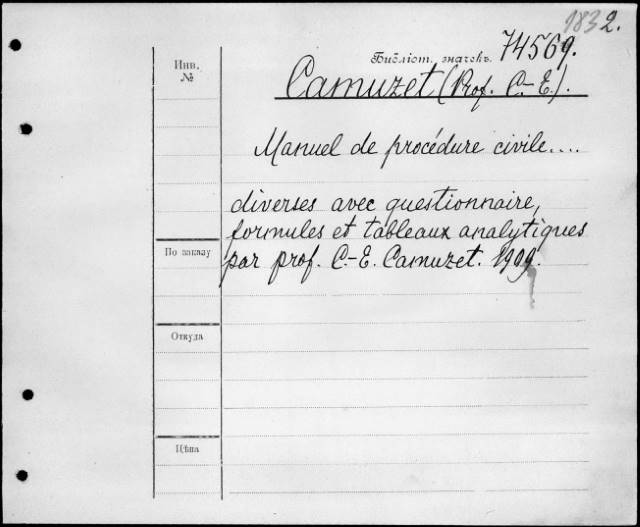 1832.
74569.
Инв.
№
Библіот. значекъ
Camuzet (Prof. C.-E.).
Manuel de procédure civile....
diverses avec questionnaire,
formules et tableaux analytiques
par prof. C.-E. Camuzet. 1909.
По заказу
Откуда
Цѣна